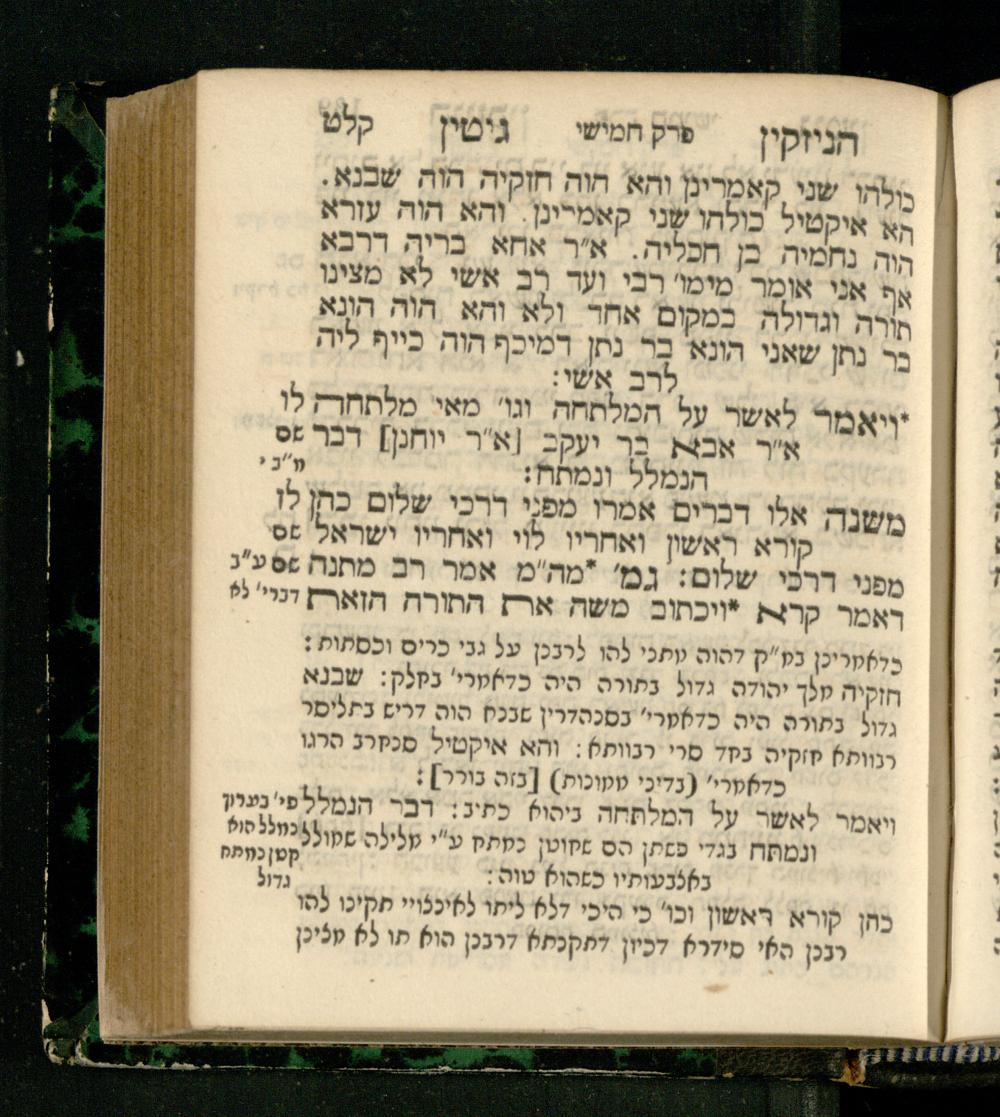 הניזקין פרק חמישי גיטין קלט
כולהו שני קאמרינן והא הוה חזקיה הוה שבנא.
הא איקטיל כולהו שני קאמרינן. והא הוה עזרא
הוה נחמיה בן חכליה. א״ר אחא בריה דרבא
אף אני אומר מימו׳ רבי ועד רב אשי לא מצינו
תורה וגדולה במקום אחד ולא והא הוה הונא
בר נתן שאני הונא בר נתן דמיכף הוה כייף ליה
לרב אשי:
*ויאמר לאשר על המלתחה וגו׳ מאי מלתחה לו
א״ר אבא בר יעקב [א״ר יוחנן] דבר שם
הנמלל ונמתח: מ״ב י׳
משנה אלו דברים אמרו מפני דרכי שלום כהן לז
קורא ראשון ואחריו לוי ואחריו ישראל שם
מפני דרכי שלום: גמ׳ *מה״מ אמר רב מתנה שם ע״ב
דאמר קרא *ויכתוב משה את התורה הזאת דברי׳ לא
כדאמרינן במ״ק דהוה מתני להו לרבנן על גבי כרים וכסתות:
חזקיה מלך יהודה גדול בתורה היה כדאמרי׳ בחלק: שבנא
גדול בתורה היה כדאמרי׳ בסנהדרין שבנא הוה דריש בתליסר
רבוותא חזקיה בחד סרי רבוותא: והא איקטיל סנחרב הרגו
כדאמרי׳ (בדיני ממונות) [בזה בורר]:
ויאמר לאשר על המלתחה ביהוא כתיב: דבר הנמלל פי׳ בערוך
ונמתח בגדי פשתן הם שקוטן נמתח ע״י מלילה שמולל כמלל הוא
באצבעותיו כשהוא טוה: קטן כמתח
גדול
כהן קורא ראשון וכו׳ כי היכי דלא ליתו לאינצויי תקינו להו
רבנן האי סידרא דכיון דתקנתא דרבנן הוא תו לא מציכן